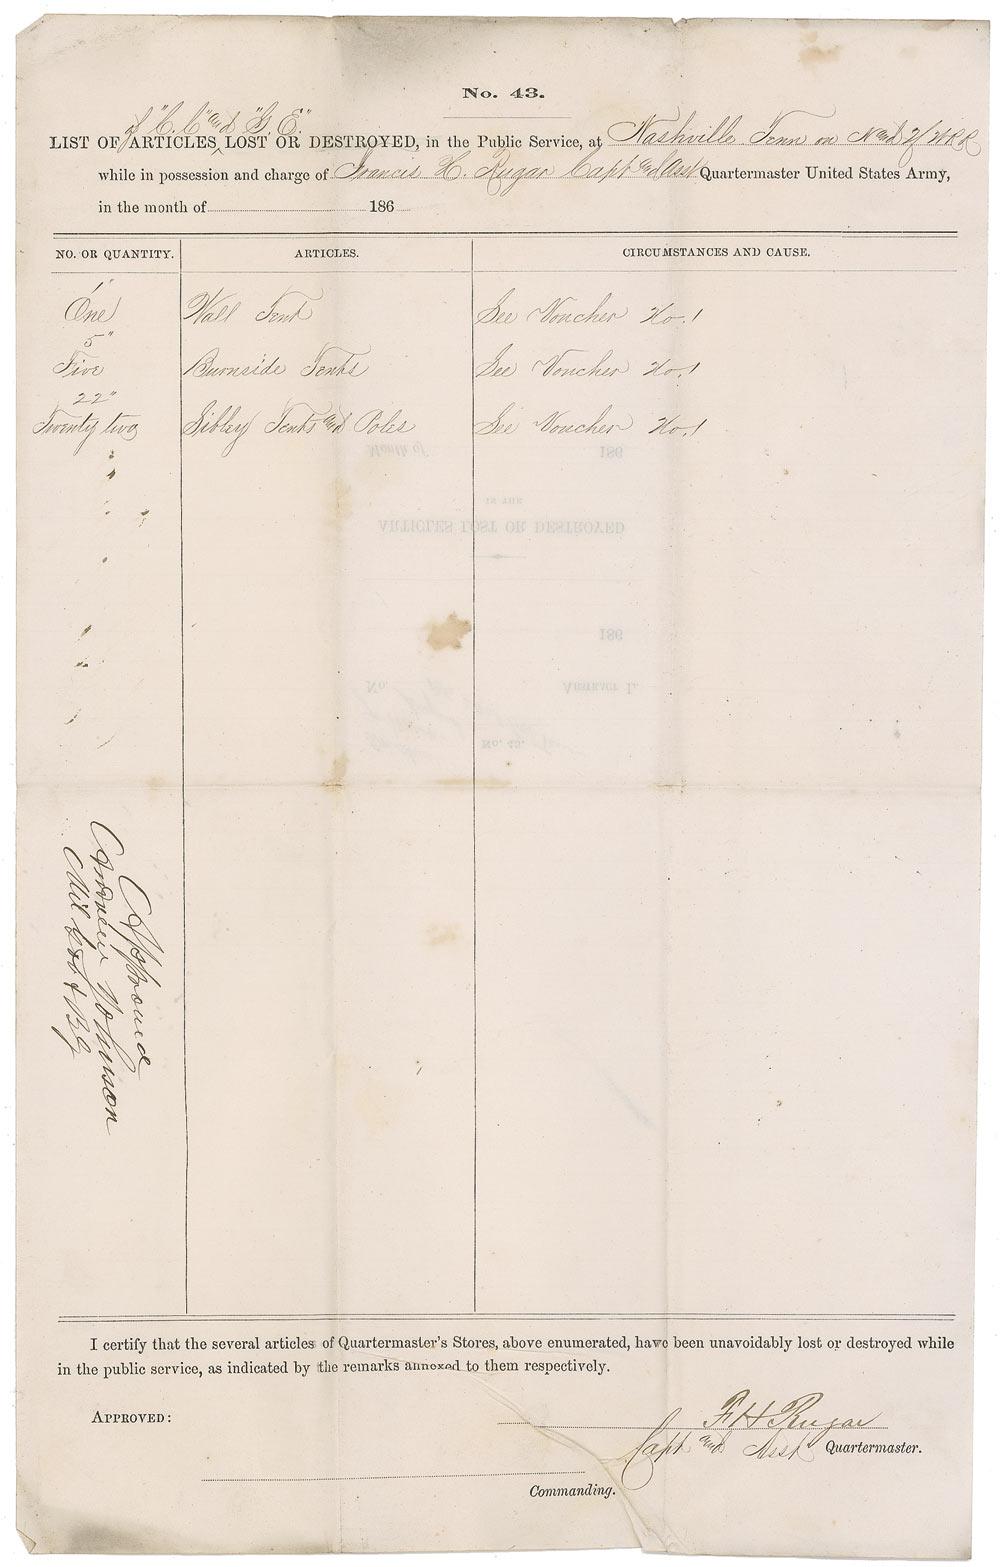 No. 43.
of "C. C" and "G. E."
LIST OF ARTICLES, LOST OR DESTROYED, in the Public Service, at Nashville Tenn on N and
while in possession and charge of Francis H. Rugar Capt and Asst Quartermaster United States Army,
in the month of 186
NO. OR QUANTITY. ARTICLES. CIRCUMSTANCES AND CAUSE.
1"
One Wall Tent See Voucher No. 1
5"
Five Burnside Tents See Voucher No. 1
22"
Twenty two Sibley Tents and Poles See Voucher No. 1
Month of 186
IN THE
ARTICLES LOST OR DESTROYED
186
No. ABSTRACT L.
No. 43.
Approved
Andrew Johnson
Mil Gov & B G
I certify that the several articles of Quartermaster's Stores, above enumerated, have been unavoidably lost or destroyed while
in the public service, as indicated by the remarks annexed to them respectively.
APPROVED:
F H Rugar
Capt and Asst Quartermaster.
Commanding.